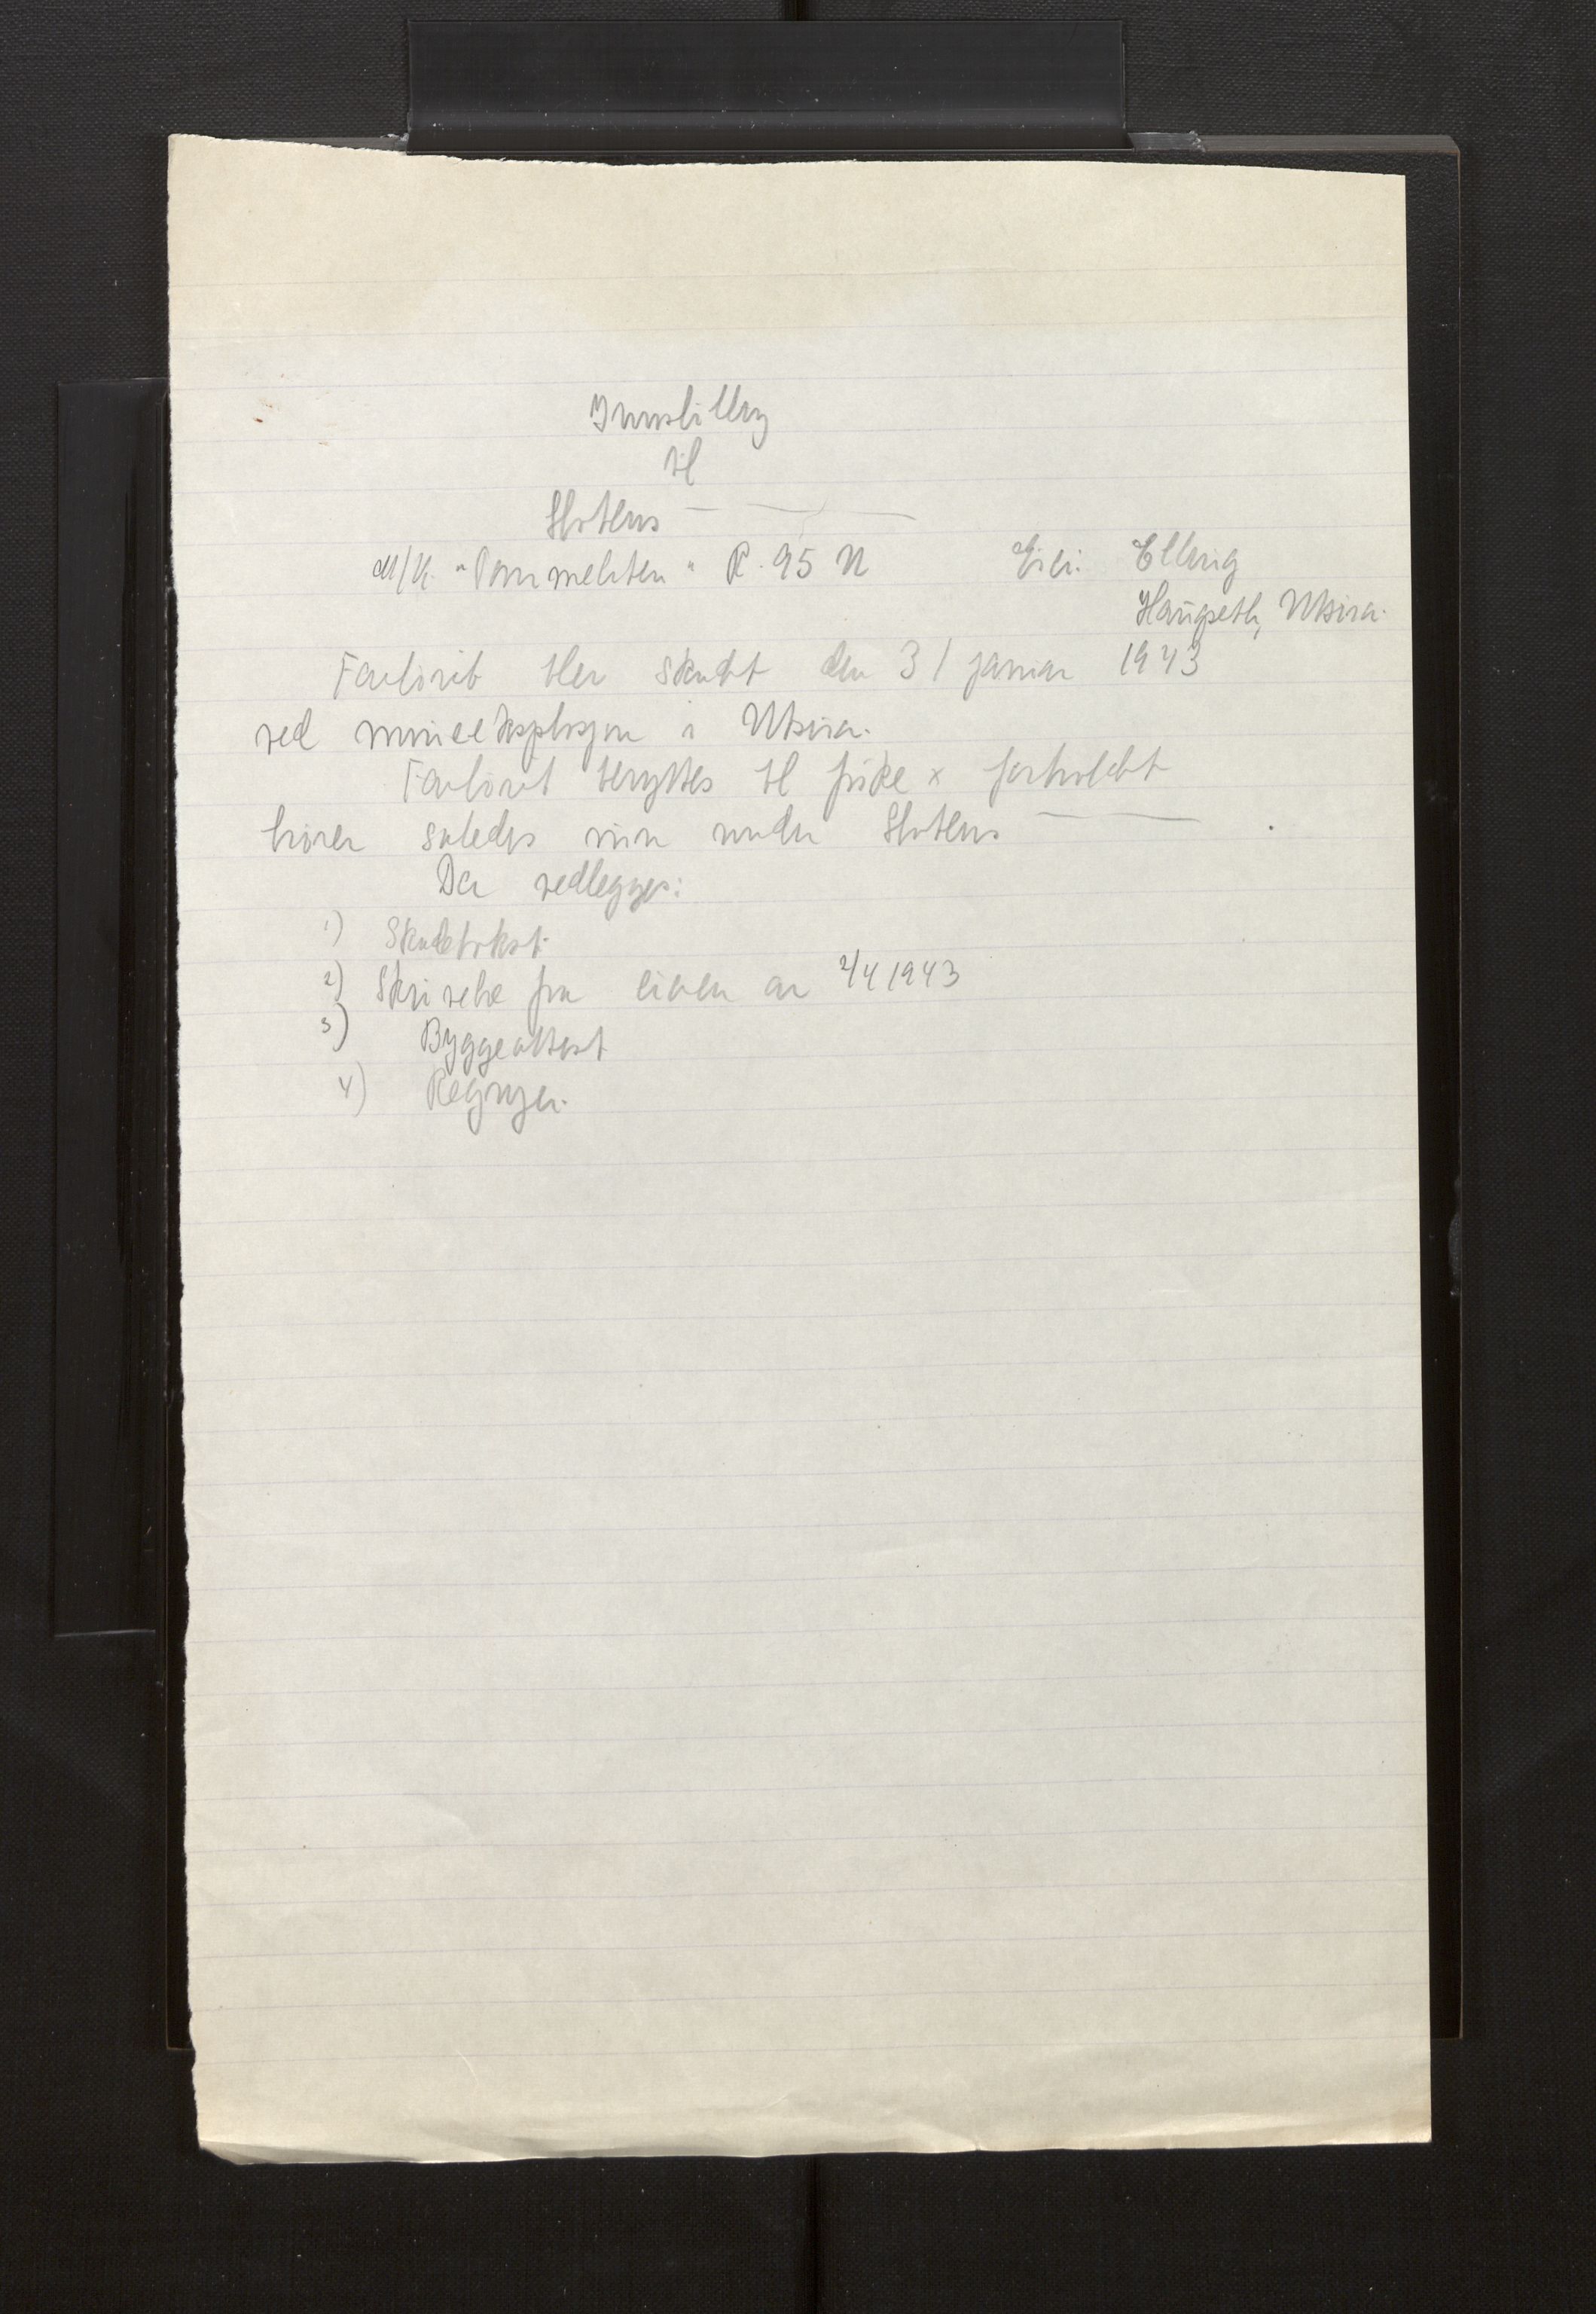 Innstilling
til
Statens — — —
M/K. "Sommerlsten" R. 95 U Eier: Elling
Haugseth, Utsira.
Fartöiet blev skadt den 31 januar 1943
ved mineeksplosjon i Utsira.
Fartöiet benyttes til fiske x forholdet
hörer således inn under Statens — —
Der vedlegges:
1) Skadetakst.
2) Skrivelse fra eieren av 2/4 1943
3) Byggeattest
4) Regninger.